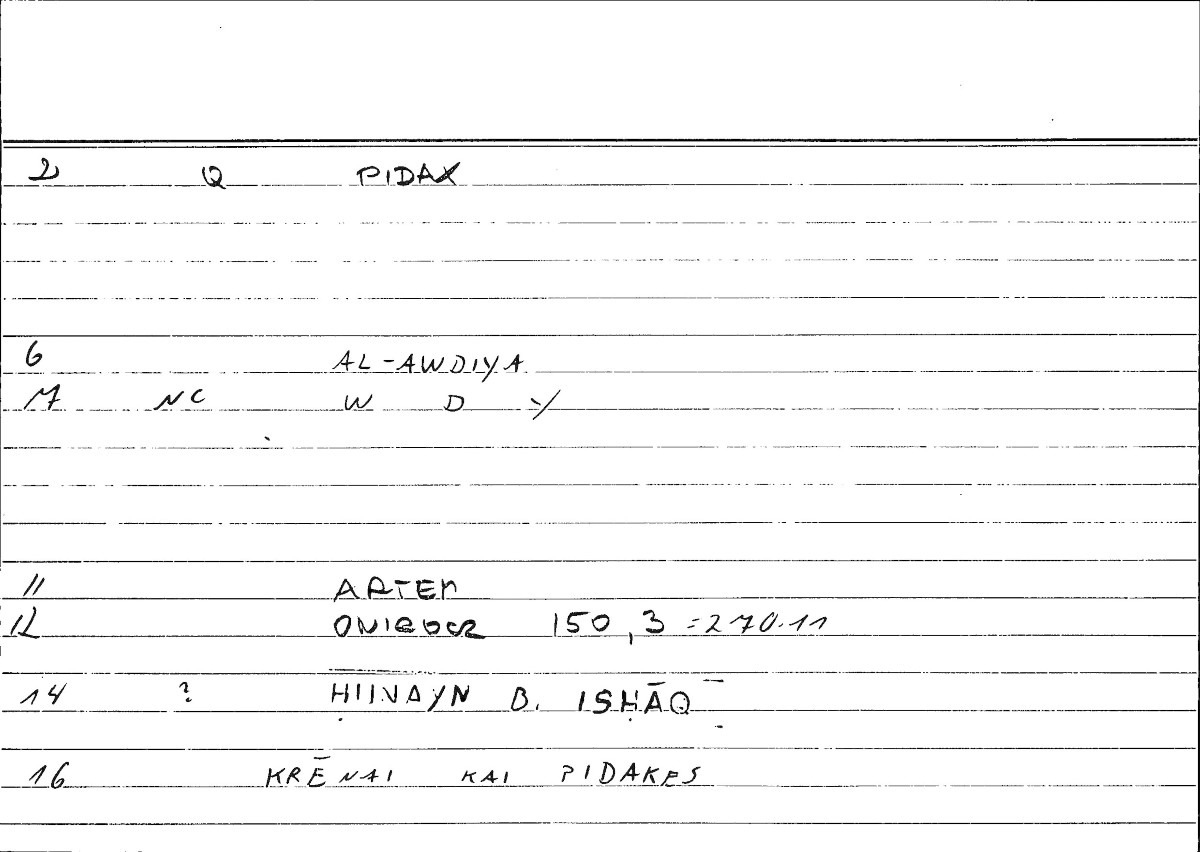 2 Q PIDAX
6 AL-AWDIYA
7 NC W D Y
11 ARTEM
12 ONIROCR 150,3 =270.11
14 ? ḤUNAYN B. ISḤĀQ
16 KRĒNAI KAI PIDAKES